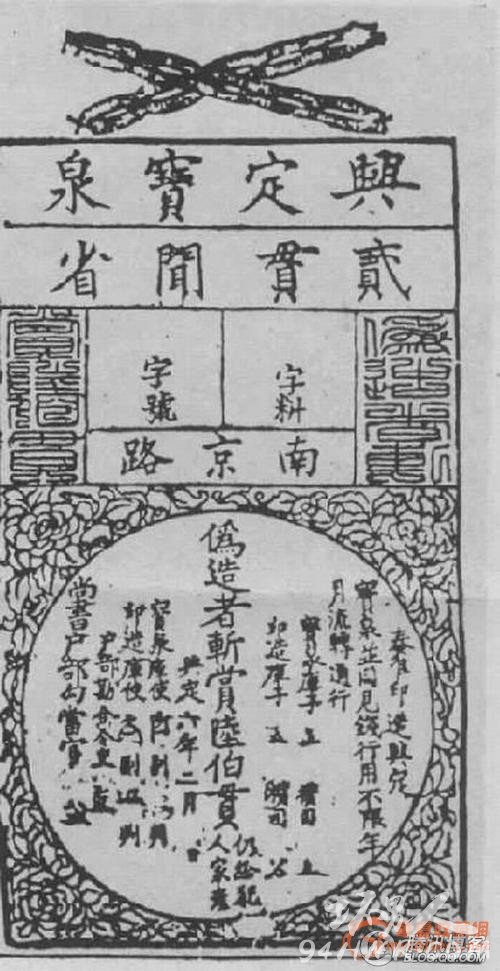 興定寶泉
貳貫聞省
偽造者斬
字料
字號
南京路
奏准印造興定
寶泉並同見錢行用不限年
月流轉通行
寶泉庫子 攢司
印造庫子 攢司
偽造者斬賞陸伯貫仍給犯人家產
興定六年二月 日
寶泉庫使 副 判
印造庫使 副 判
戶部勘合令史
尚書戶部勾當官
腾讯博客
BLOG.QQ.COM